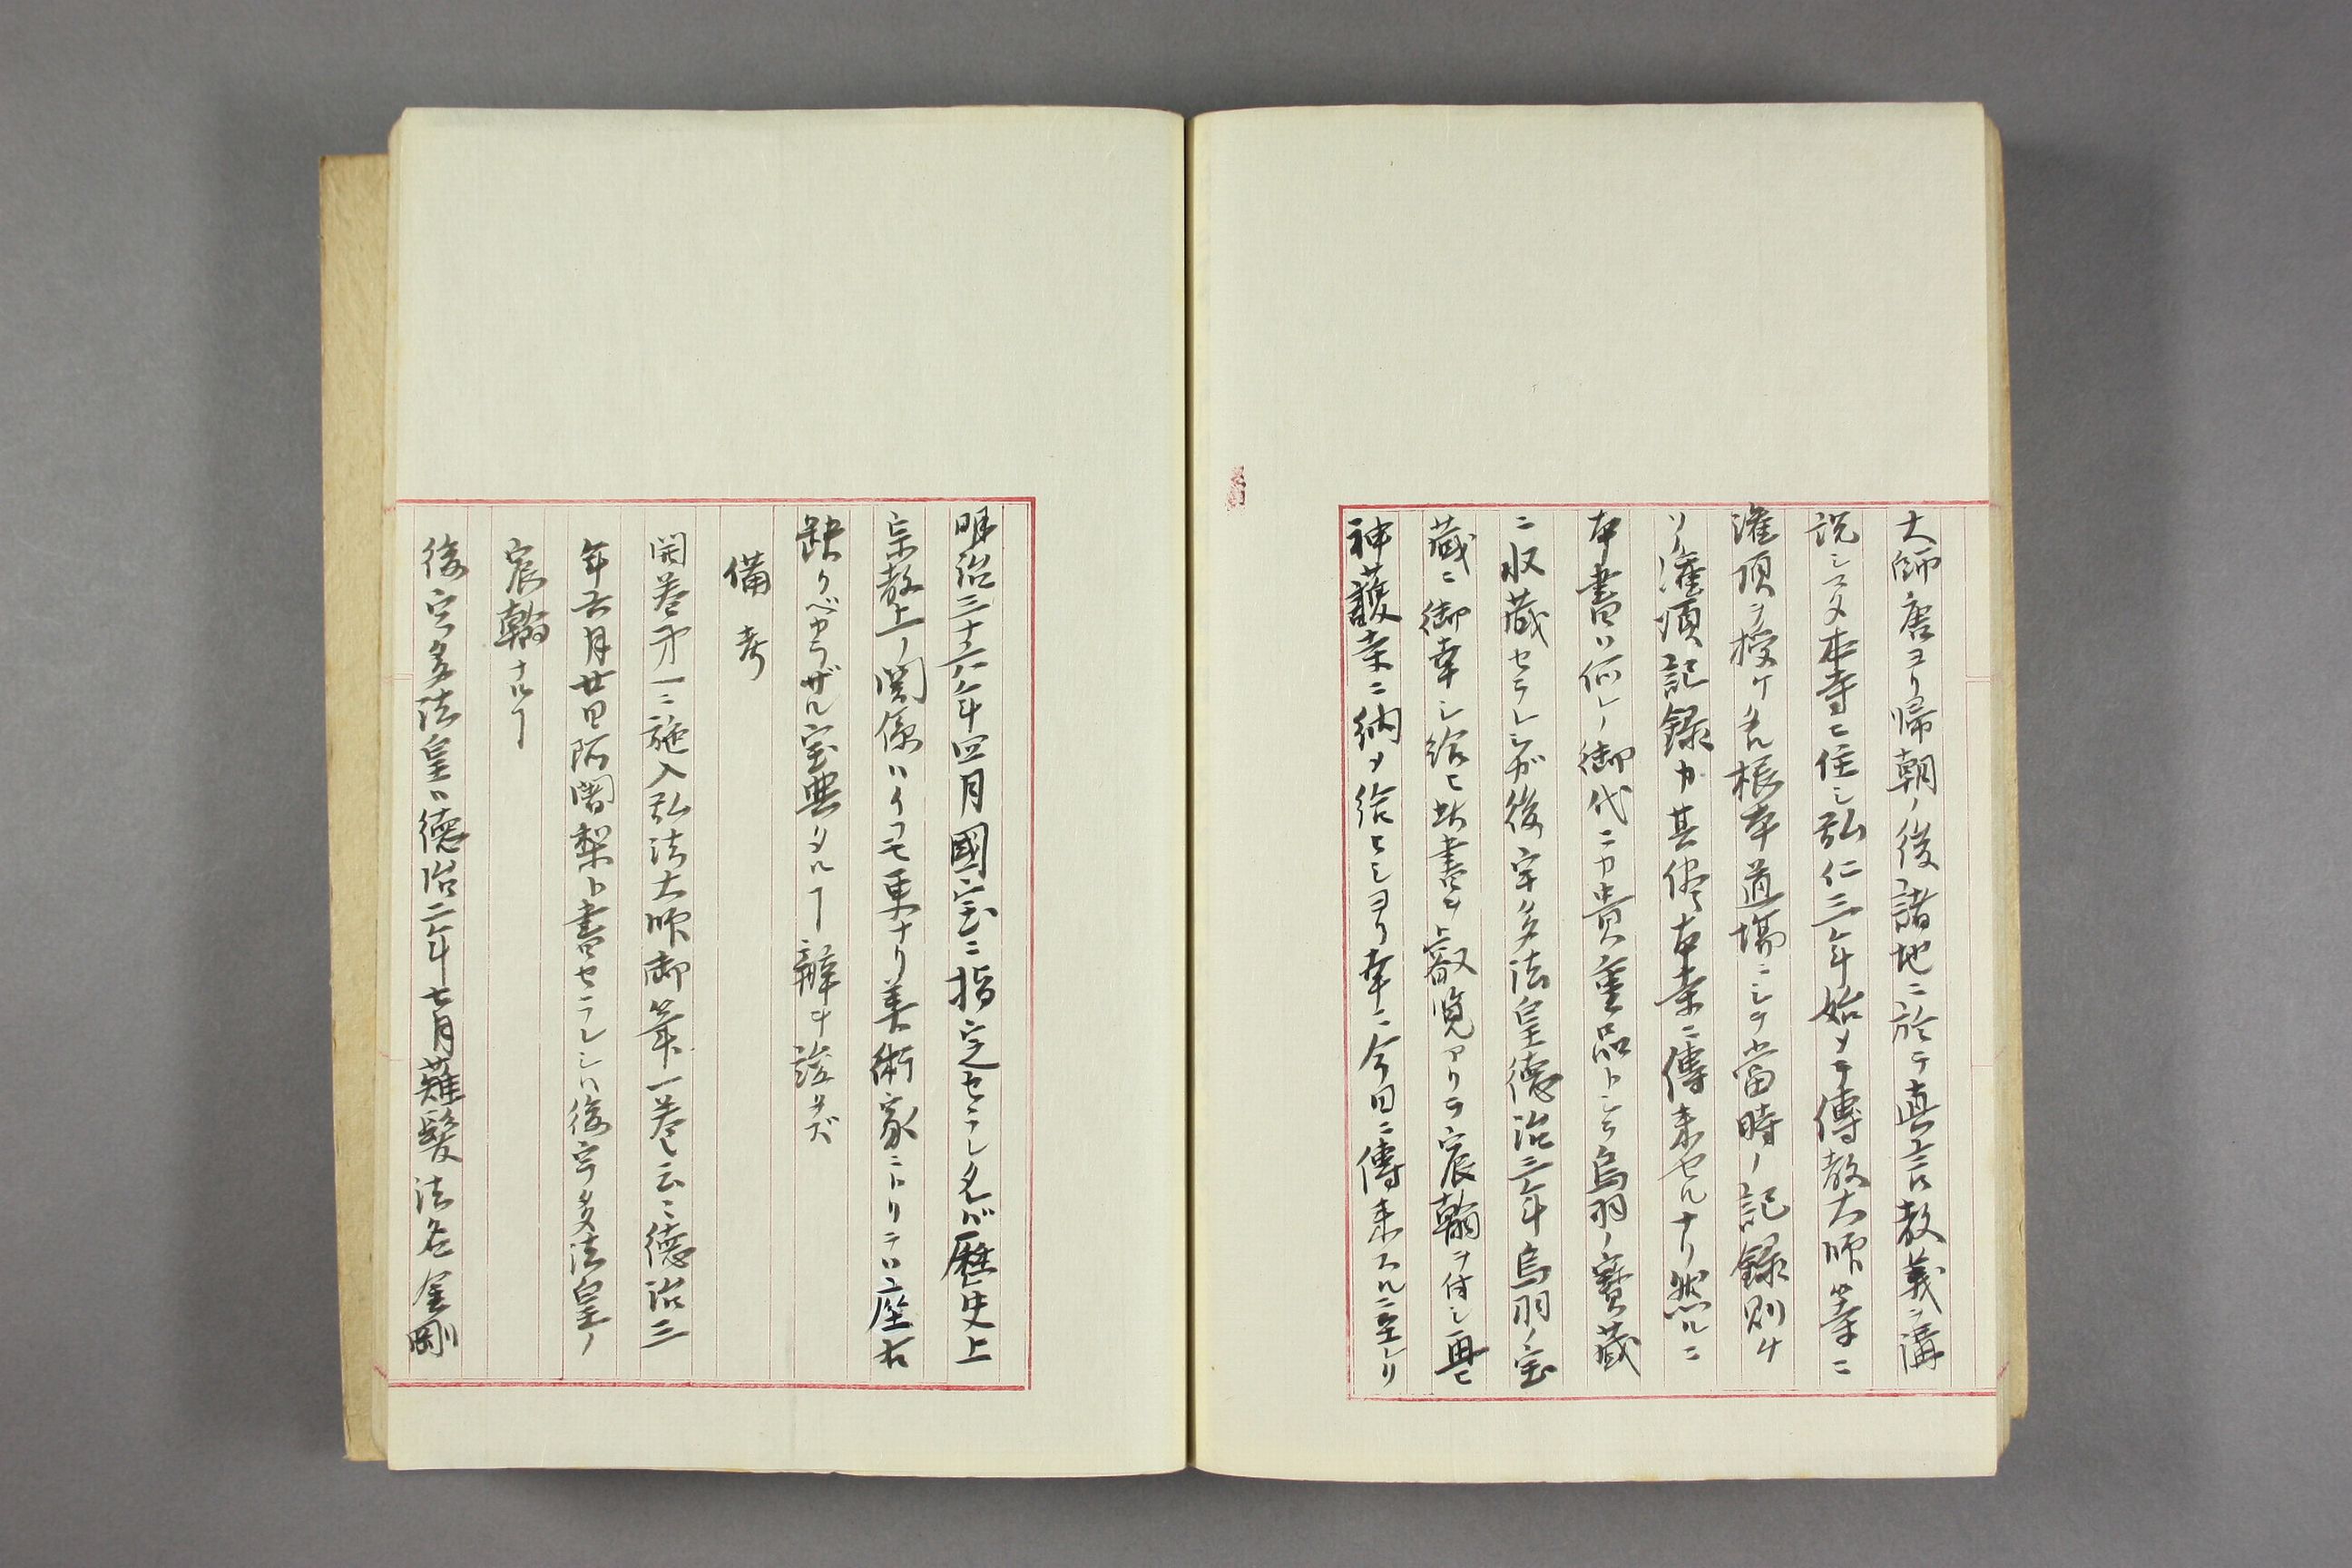 大師唐ヨリ帰朝ノ後諸地ニ於テ真言教義ヲ講
説シヌ本寺ニ住シ弘仁三年始メテ傳教大師等ニ
灌頂ヲ授ケタル根本道場ニシテ當時ノ記録則ケ
ソノ灌頂記録カ其儘本寺ニ傳来セルナリ然ルニ
本書ハ何レノ御代ニカ貴重品トシテ鳥羽ノ寳蔵
ニ収蔵セラレシガ後宇多法皇德治三年鳥羽ノ宝
蔵ニ御幸シ給ヒ此書ヲ叡覧アリテ宸翰ヲ付シ再ヒ
神護寺ニ納メ給ヒシヨリ幸ニ今日ニ傳来スルニ至レリ
明治三十六年四月國宝ニ指定セラレタルガ歴史上
宗教上ノ関係ハイフモ更ナリ美術家ニトリテハ座右
缺クベカラザル宝典タルヿ辯ヲ竢タズ
備考
開巻第一ニ施入弘法大師御筆一巻云ニ德治三
年五月廿日阿闍梨ト書セラレシハ後宇多法皇ノ
宸翰ナルヿ
後宇多法皇ハ德治二年七月薙髪法名金剛